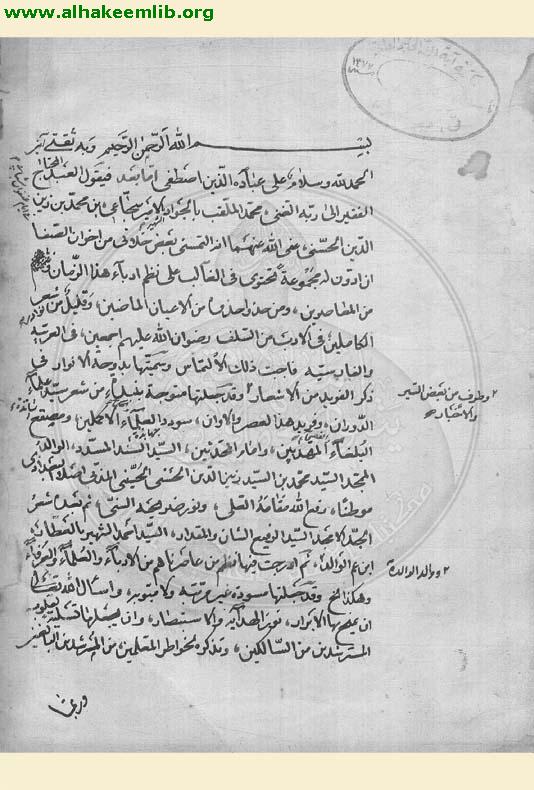 www.alhakeemlib.org
بسم الله الرحمن الرحيم وبه ثقتي
الحمد لله وسلام على عباده الذين اصطفى اما بعد فيقول العبد
الفقير الى ربه الغني محمد الملقب بالجواد بن محمد بن زين
الدين الحسني عفى الله عنهما انه التمسني بعض خلاني من اخوان الصفا
ان ادون له مجموعة تحتوي في الغالب على نظم ادباء هذا الزمان
من المعاصرين، ومن حذا حذوهم من الاعيان الماضين، وقليل من شعر
الكاملين في الادب من السلف رضوان الله عليهم اجمعين، في العربية
والفارسية فاجبت ذلك الالتماس وسميتها بدوحة الانوار في
ذكر الفريد من الاشعار وقد جعلتها متوجة من شعر سيد علماء
الدوران، وفريد هذا العصر والاوان،
البلغاء وامام المحدثين، السيد السند المسدد، الوالد
الممجد السيد محمد بن السيد زين الدين الحسني الحسيني
موطنا، رفع الله مقامه العلي، ونور ضريحه السني، ثم بعده شعر
الجد الامجد السيد الرفيع الشان والمقدار، السيد احمد الشهير بالعطار
ابن عم الوالد، ثم ادرجت فيها نظم من عاصرناهم من الادباء والعلماء والعرفاء
وقد جعلتها مسودة غير مرتبة ولا مبوبة، واسأل الله تعالى
ان ينفع بها الابرار، نور الهداية والاستبصار، وان يجعلها تسلية لقلوب
المسترشدين من السالكين، وتذكرة لخواطر المتعلمين من المسترشدين
وطرف من بعض السير
والاخبار
ووالد الوالدة